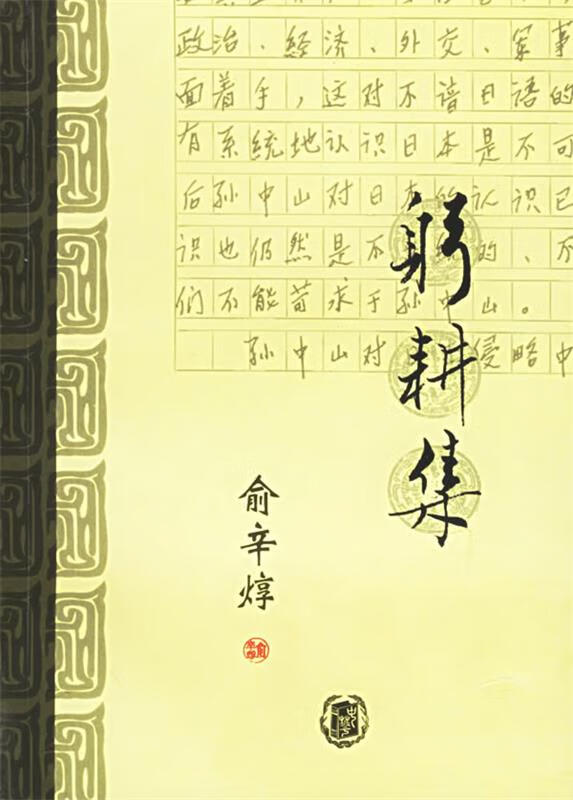 政治、经济、外交、军事
面着手，这对不谙日语的
有系统地认识日本是不可
后孙中山对日本的认识已
识也仍然是不 的、不
们不能苛求于孙中山。
孙中山对 侵略中
躬耕集
俞辛焞